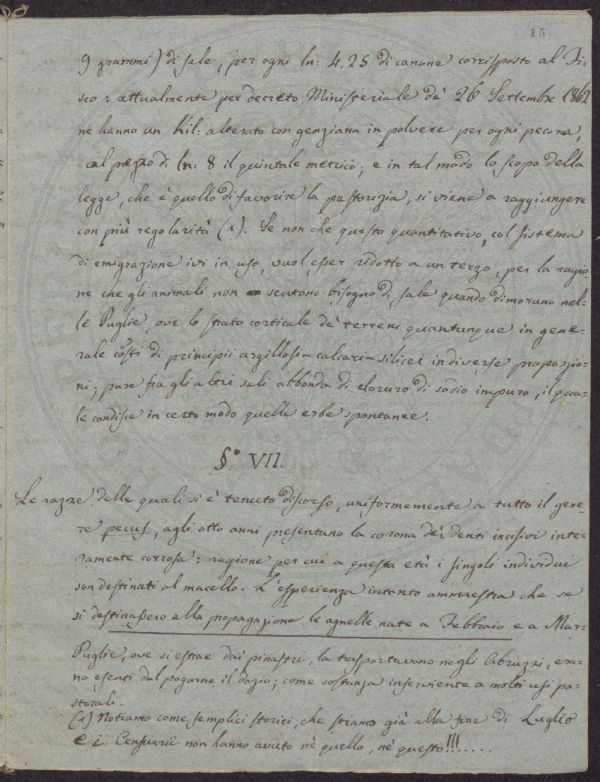 15
9 grammi) di sale, per ogni ln: 4,25 di canone corrisposto al Fi-
sco: attualmente per decreto Ministeriale de' 26 Settembre 1862
ne hanno un Kil: alterato con genziana in polvere per ogni pecora,
al prezzo di ln: 8 il quintale metrico; e in tal modo lo scopo della
legge, che è quello di favorire la pastorizia, si viene a raggiungere
con più regolarità (1). Se non che questo quantitativo, col sistema
di emigrazione ivi in uso, vuol esser ridotto a un terzo, per la ragio
ne che gli animali non sentono bisogno di sale quando dimorano nel-
le Puglie, ove lo strato corticale de' terreni quantunque in gene-
rale costi di principii argillosi-calcari-silicei in diverse proporzio-
ni; pure fra gli altri sali abbonda di cloruro di sodio impuro, il qua-
le condisce in certo modo quelle erbe spontanee.
§.° VII.
Le razze delle quali si è tenuto discorso, uniformemente a tutto il gene-
re pecus, agli otto anni presentano la corona de' denti incisivi inte-
ramente corrosa: ragione per cui a questa età i singoli individui
son destinati al macello. L'esperienza intanto ammaestra che se
si destinassero alla propagazione le agnelle nate a Febbraio e a Mar-
Puglie, ove si estrae dai pinastri, la trasportavano negli Abruzzi, era-
no esenti dal pagarne il dazio; come sostanza inserviente a molti usi pa-
storali.
(1) Notiamo come semplici storici, che stiamo già alla fine di Luglio
e i Censuarii non hanno avuto nè quello, nè questo!!!......